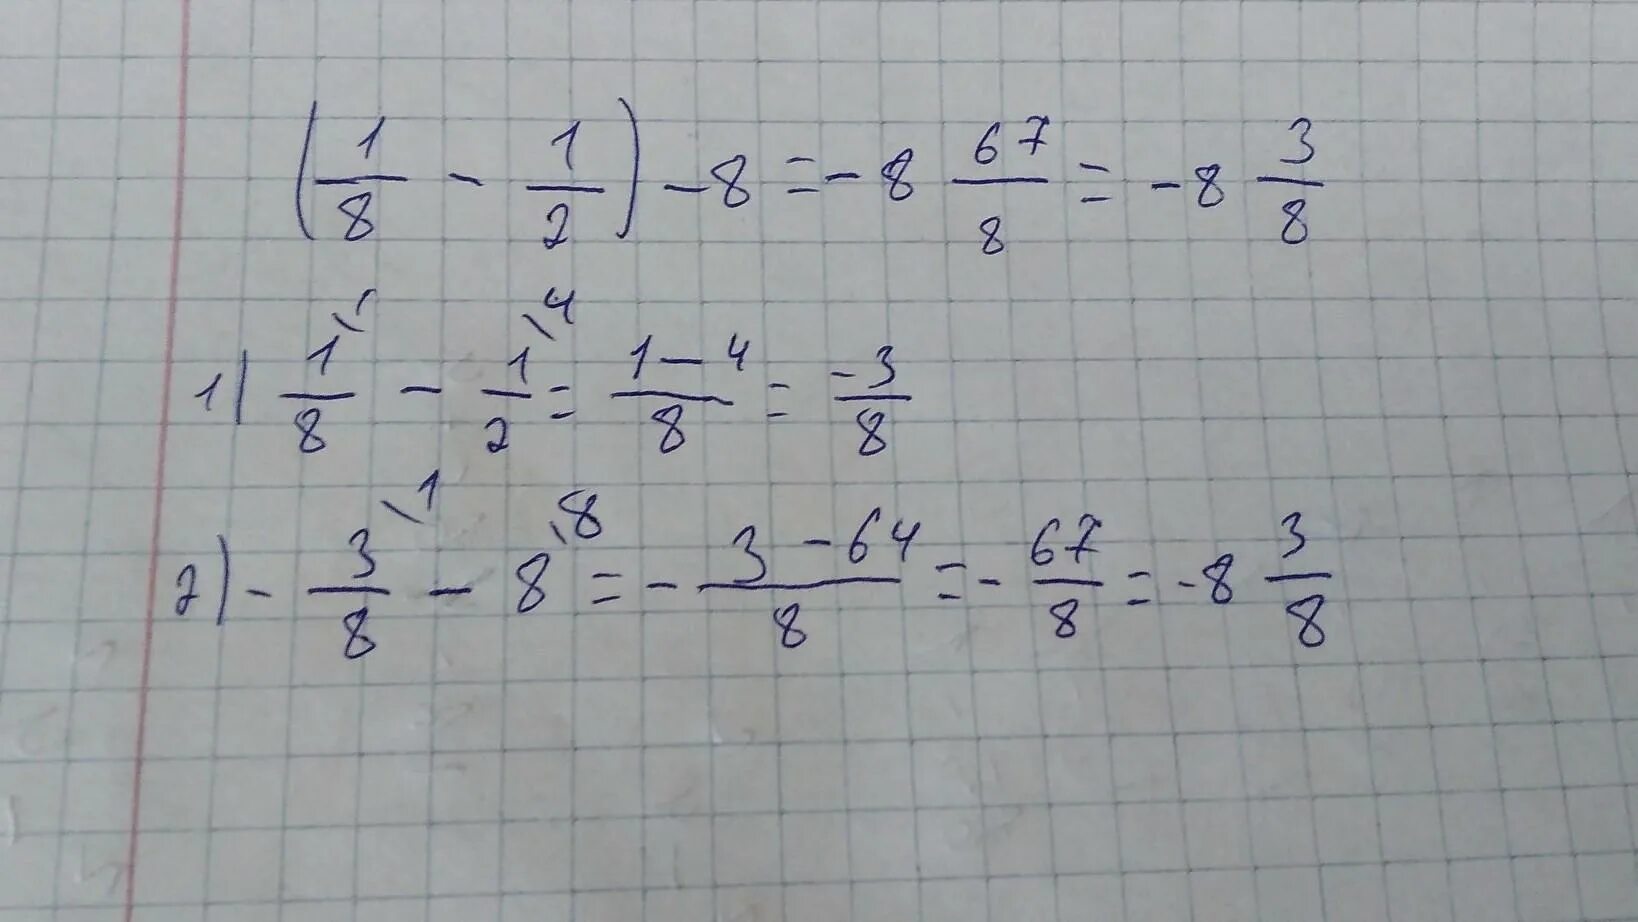 (1/8 - 1/2) - 8 = - 8 67/8 = - 8 3/8
1) 1\1/8 - 1\4/2 = 1 - 4/8 = -3/8
2) - 3\1/8 - 8\8 = - 3 - 64/8 = - 67/8 = - 8 3/8